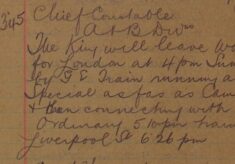 345 Chief Constable
A & B Divns
The King will leave Wo
for London at 4 pm Sun
by S. Train running a
Special as far as Cam
& then connecting with
Ordinary 5.10 pm train
Liverpool St 6.26 pm